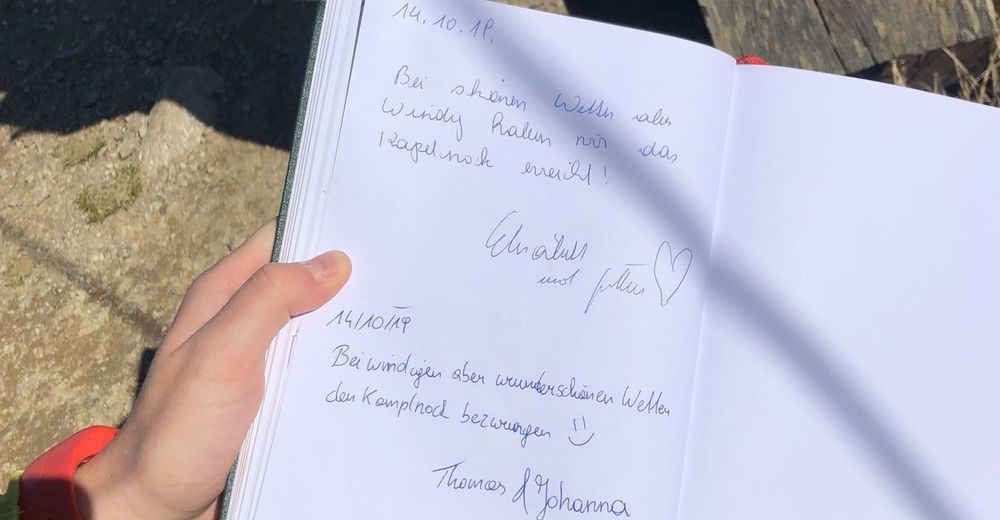 14.10.19.
Bei schönen Wetter aber
Windig haben wir das
Kapelnock erreicht!
Elisabeth
und
14/10/19
Bei windigen aber wunderschönen Wetter
den Kamplnock bezwungen :)
Thomas & Johanna